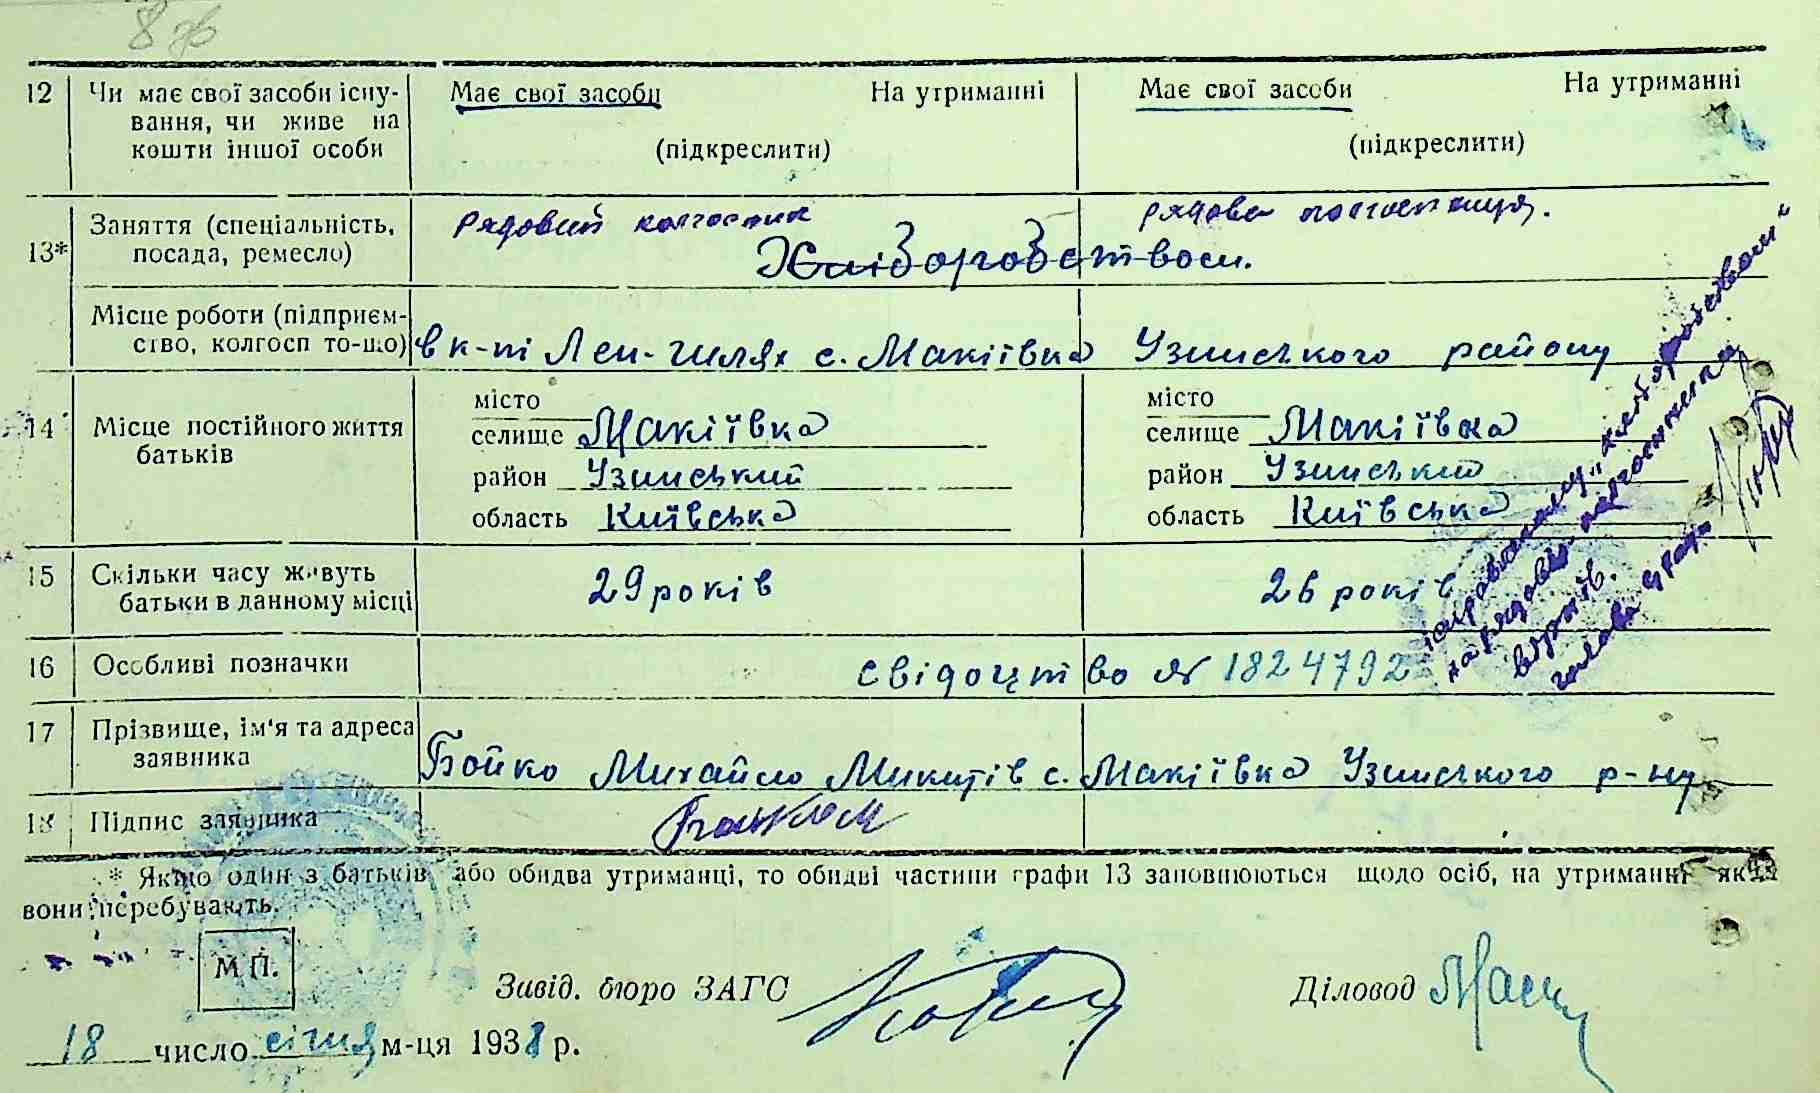 8ж
12 Чи має свої засоби існу- Має свої засоби На утриманні Має свої засоби На утриманні
вання, чи живе на
кошти іншої особи (підкреслити) (підкреслити)
13* Заняття (спеціальність, рядовий колгоспник рядова колгоспниця.
посада, ремесло) Хліборобством.
Місце роботи (підприєм-
ство, колгосп то-що) в к-пі Лен-шлях с. Макіївка Узинського району
14 Місце постійного життя
батьків
місто місто
селище Макіївка селище Макіївка
район Узинський район Узинський
область Київська область Київська
15 Скільки часу живуть
батьки в данному місці 29 років 26 років
16 Особливі позначки свідоцтво № 1824792
17 Прізвище, ім'я та адреса
заявника Бойко Михайло Микитів с. Макіївка Узинського р-ну
18 Підпис заявника
* Якщо один з батьків або обидва утриманці, то обидві частини графи 13 заповнюються щодо осіб, на утриманні яких
вони перебувають.
М.П.
Завід. бюро ЗАГС Діловод
18 число січня м-ця 1938 р.
"хліборобством"
на рядовы колгоспники
вірнів.
голова с/ради